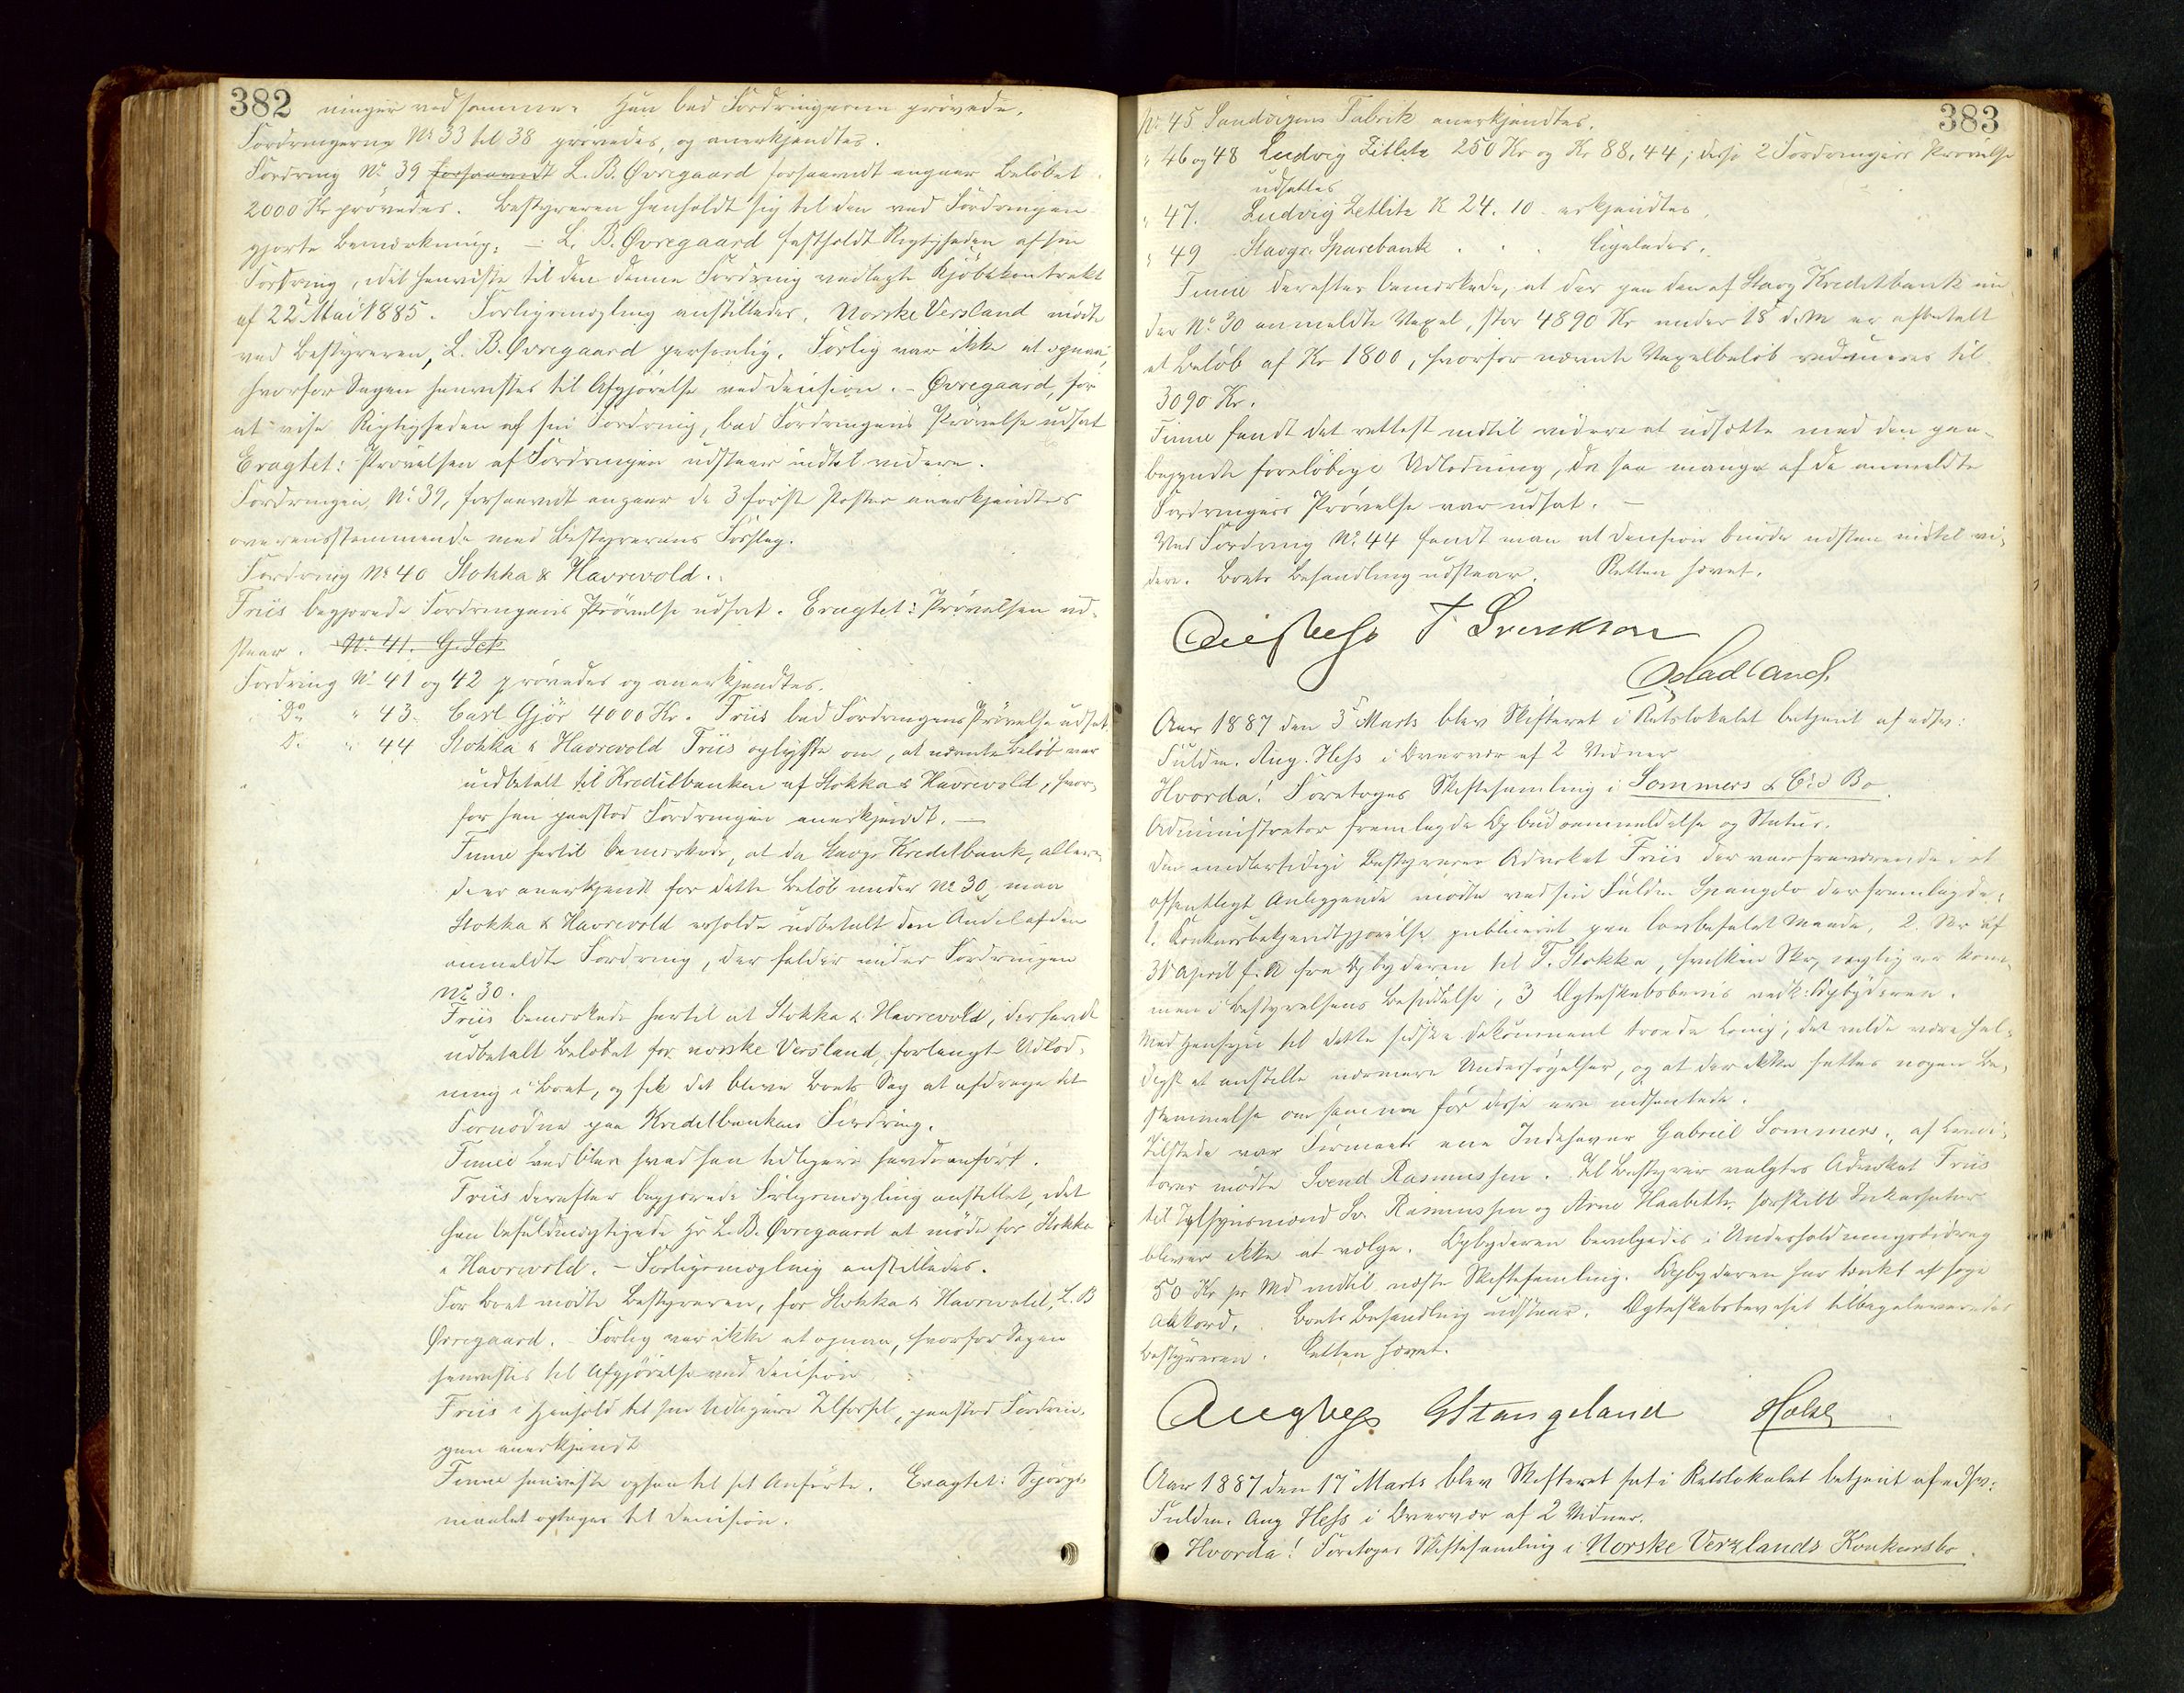 382 ninger ved samme. Han bad Fordringerne prøvede.
Fordringerne No 33 til 38 prøvedes, og anerkjendtes.
Fordring No 39 forsaavidt L. B. Øvregaard forsaavidt angaar Beløbet
2000 Kr prøvedes. Bestyreren henholdt sig til den ved Fordringen
gjorte Bemærkning. – L. B. Øvregaard fastholdt Rigtigheden af sin
Fordring, idet henviste til den denne Fordring vedlagte Kjøbekontrakt
af 22 Mai 1885. Forligsmægling anstilledes. Norske Versland mødte
ved Bestyreren, L. B. Øvregaard personlig. Forlig var ikke at opnaa,
hvorfor Sagen henvistes til Afgjørelse ved Decision. – Øvregaard, for
at vise Rigtigheden af sin Fordring, bad Fordringens Prøvelse udsat
Eragtet: Prøvelsen af Fordringen udstaar indtil videre.
Fordringen, No 39, forsaavidt angaar de 3 først Poster anerkjendtes
overensstemmende med Bestyrerens Forslag.
Fordring No 40 Stokka & Havrevold.
Friis begjærede Fordringens Prøvelse udsat. Eragtet: Prøvelsen ud-
staar. No 41. G. Sch
Fordring No 41 og 42 prøvedes og anerkjendtes.
Do " 43. Carl Gjör 4000 Kr. Friis bad Fordringens Prøvelse udsat
D. " 44 Stokka & Havrevold Friis oplyste om, at nævnte Beløb var
indbetalt til Kreditbanken af Stokka & Havrevold, hvor-
for han paastod Fordringen anerkjendt. —
Finne hertil bemærkede, at da Stavgr Kreditbank, aller-
de er anerkjendt for dette Beløb under No 30, maa
Stokka & Havrevold erholde udbetalt den Andel af den
anmeldte Fordring, der falder under Fordringen
No 30.
Friis bemærkede hertil at Stokka & Havrevold, der havde
udbetalt Beløbet for norske Versland, forlangte Udlod-
ning i Boet, og fik det blive Boets Sag at afdrage det
Fornødne paa Kreditbankens Fordring.
Finne vedblev hvad han tidligere havde anført.
Friis derefter begjærede Forligsmægling anstillet, idet
han befuldmægtigede Hr L. B. Øvregaard at møde for Stokka
& Havrevold. – Forligsmægling anstilledes.
For Boet mødte Bestyreren, for Stokka & Havrevold, L. B
Øvregaard. – Forlig var ikke at opnaa, hvorfor Sagen
henvistes til Afgjørelse ved Decision
Friis i Henhold til sin tidligere Tilførsel, paastod Fordrin-
gen anerkjendt
Finne henviste ogsaa til sit Anførte. Eragtet: Spørgs-
maalet optages til Decision.
383
No 45 Sandvigens Fabrik anerkjendtes.
" 46 og 48 Ludvig Zetlitz 250 Kr og Kr 88,44; disse 2 Fordringers Prøvelse
udsattes
" 47. Ludvig Zetlitz K 24.10 erkjendtes.
" 49 Stavgr. Sparebank . . . ligeledes.
Finne derefter bemærkede, at der paa den af Stavg Kreditbank un-
der No 30 anmeldte Vexel, stor 4890 Kr under 18 d.M er afbetalt
et Beløb af Kr 1800, hvorfor nævnte Vexelbeløb reduceres til
3090 Kr.
Finne fandt det rettest indtil videre at udsætte med den paa-
begyndte foreløbige Udlodning, da saa mange af de anmeldte
Fordringers Prøvelse var udsat. —
Ved Fordring No 44 fandt man at Decision burde udstaa indtil vi-
dere. Boets Behandling udstaar. Retten hævet.
Aug Hess T. Svendsen
Madland.
Aar 1887 den 3 Marts blev Skifteret i Retslokalet betjent af edsv:
Fuldm. Aug. Hess i Overvær af 2 Vidner
Hvorda! Foretoges Skiftesamling i Sommers & Co's Bo.
Administrator fremlagde Opbudsanmeldelse og Status.
Den midlertidige Bestyrerer Advokat Friis der var fraværende i et
offentligt Anliggende mødte ved sin Fuldm Spangelo der fremlagde:
1. Konkursbekjendtgjørelse publiceret paa lovbefalet Maade, 2. Skr af
31 April f. A fra Opbyderen til T. Stokka, hvilken Skr, nylig er kom-
men i Bestyrelsens Besiddelse, 3 Ægteskabsbevis vedk: Opbyderen.
Med Hensyn til dette sidste Dokument troede man, det vilde være hel-
digst at anstille nærmere Undersøgelser, og at der ikke fattes nogen Be-
stemmelse om samme før disse ere indhentede.
Tilstede var Firmaets ene Indehaver Gabriel Sommers, af Kredi-
torer mødte Svend Rasmussen. Til Bestyrer valgtes Advokat Friis
til Tilsynsmænd Sv. Rasmussen og Arne Haabeth. særskilt Inkassator
bliver ikke at vælge. Opbyderen bevilgedes i Underholdningsbidrag
50 Kr pr Md indtil næste Skiftesamling. Opbyderen har tænkt at søge
Akkord. Boets Behandling udstaar. Ægteskabsbeviset tilbageleveredes
Bestyreren. Retten hævet.
Aug Hess GStangeland Holst
Aar 1887 den 17 Marts blev Skifteret sat i Retslokalet betjent af edsv:
Fuldm. Aug Hess i Overvær af 2 Vidner.
Hvorda! Foretoges Skiftesamling i Norske Verslands Konkursbo.